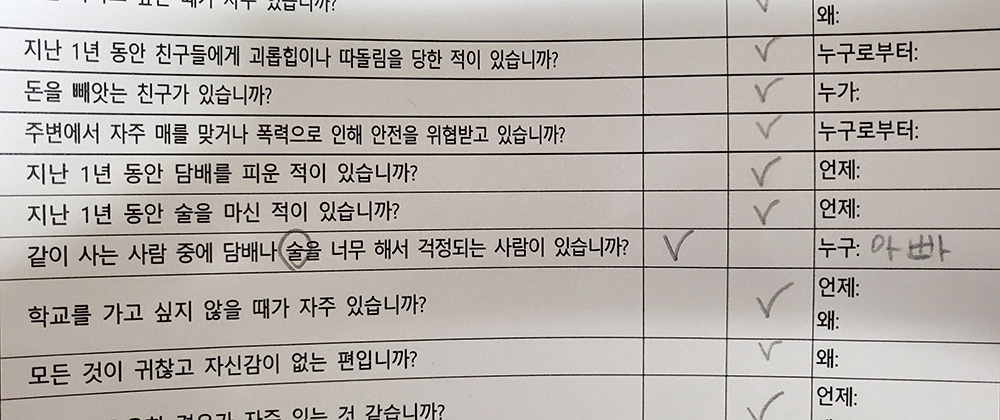 때가 자주 있습니까?
왜:
지난 1년 동안 친구들에게 괴롭힘이나 따돌림을 당한 적이 있습니까?
누구로부터:
돈을 빼앗는 친구가 있습니까?
누가:
주변에서 자주 매를 맞거나 폭력으로 인해 안전을 위협받고 있습니까?
누구로부터:
지난 1년 동안 담배를 피운 적이 있습니까?
언제:
지난 1년 동안 술을 마신 적이 있습니까?
언제:
같이 사는 사람 중에 담배나 술을 너무 해서 걱정되는 사람이 있습니까?
누구: 아빠
학교를 가고 싶지 않을 때가 자주 있습니까?
언제:
왜:
모든 것이 귀찮고 자신감이 없는 편입니까?
왜:
경우가 자주 있는 것 같습니까?
언제: